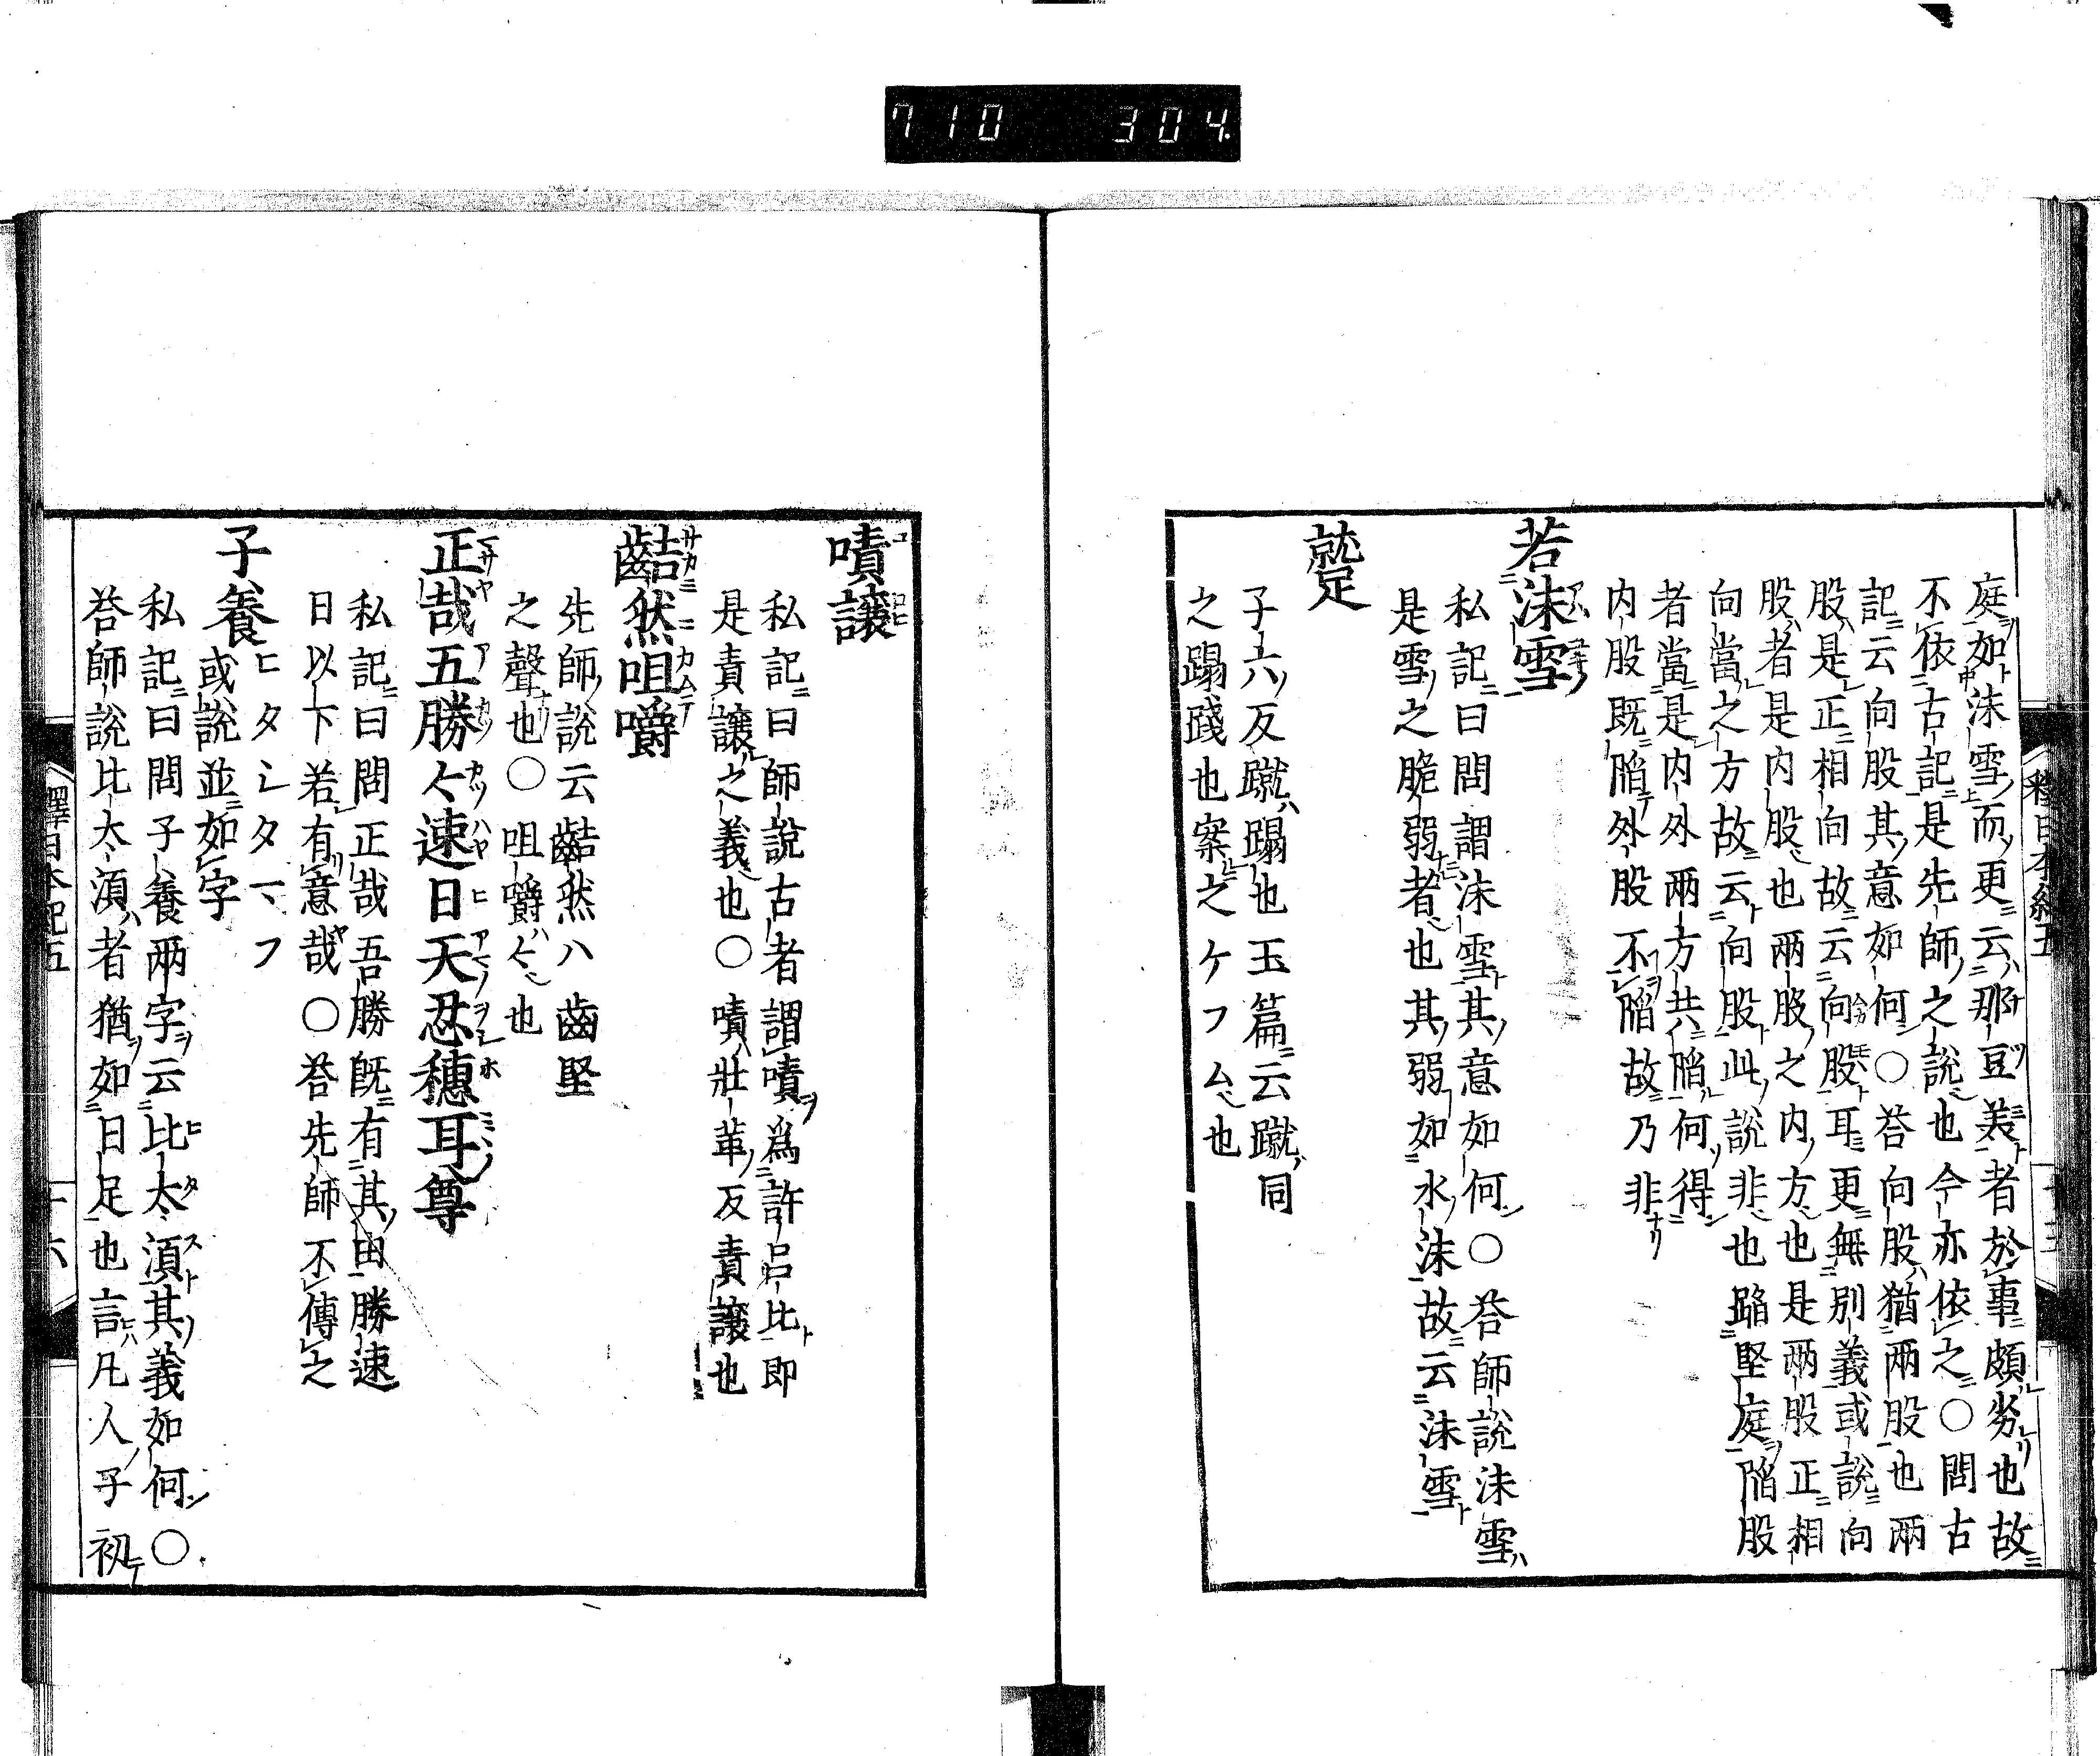 710 304.
庭如沫雪而更云那豆美者於事頗劣也故
不依古記是先師之說也今亦依之○問古
記云向股其意如何○荅向股猶兩股也兩
股是正相向故云向股耳更無別義或說向
股者是内股也兩股之内方也是兩股正相
向當之方故云向股此說非也蹈堅庭陷股
者當是内外兩方共陷何得
内股既陷外股不陷故乃非
若沫雪
私記曰問謂沫雪其意如何○荅師說沫雪
是雪之脆弱者也其弱如水沫故云沫雪
蹵
子六反蹴蹋也玉篇云蹴同
之蹋踐也案之ケフム也
釋日本紀五
嘖讓
私記曰師說古者謂嘖爲許呂比即
是責讓之義也○嘖壯革反責讓也
䶗然咀嚼
先師說云䶗然ハ齒堅
之聲也○咀嚼〻也
正哉吾勝〻速日天忍穗耳尊
私記曰問正哉吾勝既有其由勝速
日以下若有意哉○荅先師不傳之
子養ヒタシタマフ
或說並如字
私記曰問子養兩字云比太須其義如何○
荅師說比太須者猶如日足也言凡人子初
釋日本紀五 十六